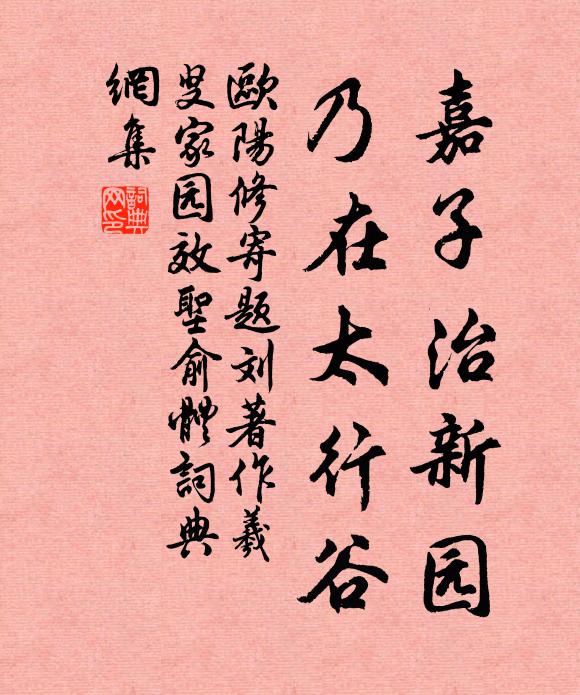 嘉子治新园
乃在太行谷
歐陽修寄題刘著作羲
叟家园效聖俞體詞典
網集
詞典网印